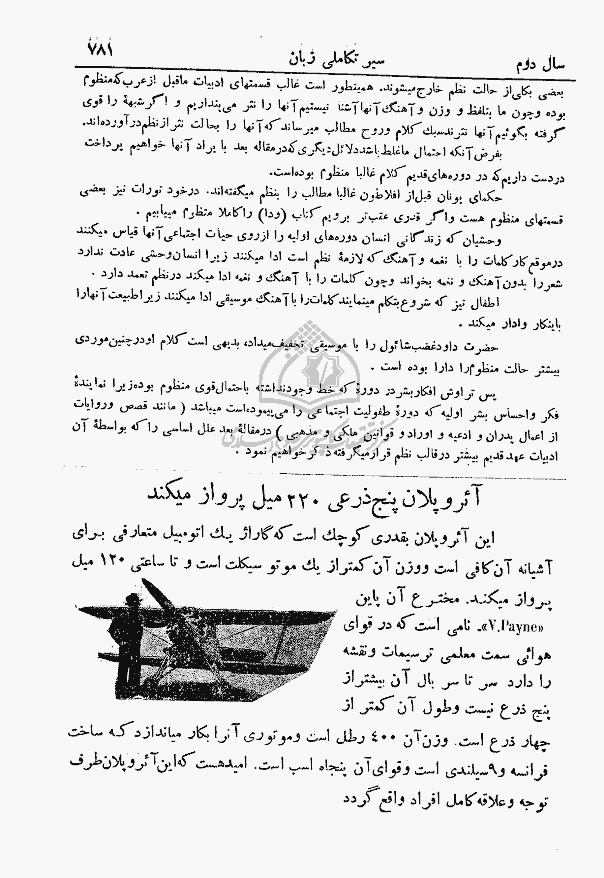 سال دوم
سیر تکاملی زبان
۷۸۱
بعضی بکلی از حالت نظم خارج میشوند. همینطور است غالب قسمتهای ادبیات ماقبل از عرب که منظوم
بوده وچون ما بتلفظ و وزن و آهنگ آنها آشنا نیستیم آنها را نثر می‌پنداریم و اگر شبههٔ را قوی
گرفته بگوئیم آنها نثرند سبك كلام وروح مطالب میرساند که آنها را بحالت نثر از نظم درآورده‌اند.
بفرض آنکه احتمال ماغلط باشد دلائل دیگری که درمقاله بعد با یراد آنها خواهیم پرداخت
دردست داریم که در دوره‌های قدیم کلام غالبا منظوم بوده‌است.
حکمای یونان قبل از افلاطون غالبا مطالب را بنظم میگفته‌اند. درخود تورات نیز بعضی
قسمتهای منظوم هست واگر قدری عقب‌تر برویم کتاب (ودا) را کاملا منظوم مییابیم .
وحشیان که زندگانی انسان دوره‌های اولیه را ازروی حیات اجتماعی آنها قیاس میکنند
درموقع کار کلمات را با نغمه و آهنگ که لازمهٔ نظم است ادا میکنند زیرا انسان وحشی عادت ندارد
شعر را بدون آهنگ و نغمه بخواند وچون کلمات را با آهنگ و نغمه ادا میکند درنظم تعمد دارد .
اطفال نیز که شروع بتکلم مینمایند کلمات را با آهنگ موسیقی ادا میکنند زیرا طبیعت آنها را
باینکار وادار میکند .
حضرت داود غضب شائول را با موسیقی تخفیف میداد، بدیهی است کلام اودرچنین موردی
بیشتر حالت منظوم را دارا بوده است .
پس تراوش افکار بشر در دورهٔ که خط وجود نداشته باحتمال قوی منظوم بوده زیرا نمایندهٔ
فکر واحساس بشر اولیه که دورهٔ طفولیت اجتماعی را می‌پیموده‌است میباشد ( مانند قصص وروایات
از اعمال پدران و ادعیه و اوراد و قوانین ملکی و مذهبی ) درمقالهٔ بعد علل اساسی را که بواسطهٔ آن
ادبیات عهد قدیم بیشتر درقالب نظم قرار میگرفته ذکر خواهیم نمود .
آئروپلان پنج ذرعی ۲۲۰ میل پرواز میکند
این آئروپلان بقدری کوچك است که گاراژ یك اتومبیل متعارفی برای
آشیانه آن کافی است ووزن آن کمتر از یك موتو سیکلت است و تا ساعتی ۱۲۰ میل
پرواز میکند. مخترع آن پاین
«V.Payne» نامی است که در قوای
هوائی سمت معلمی ترسیمات ونقشه
را دارد سر تا سر بال آن بیشتر از
پنج ذرع نیست وطول آن کمتر از
چهار ذرع است. وزن آن ۴۰۰ رطل است وموتوری آنرا بکار میاندازد که ساخت
فرانسه و۹ سیلندی است وقوای آن پنجاه اسب است. امید هست که این آئروپلان طرف
توجه وعلاقه کامل افراد واقع گردد